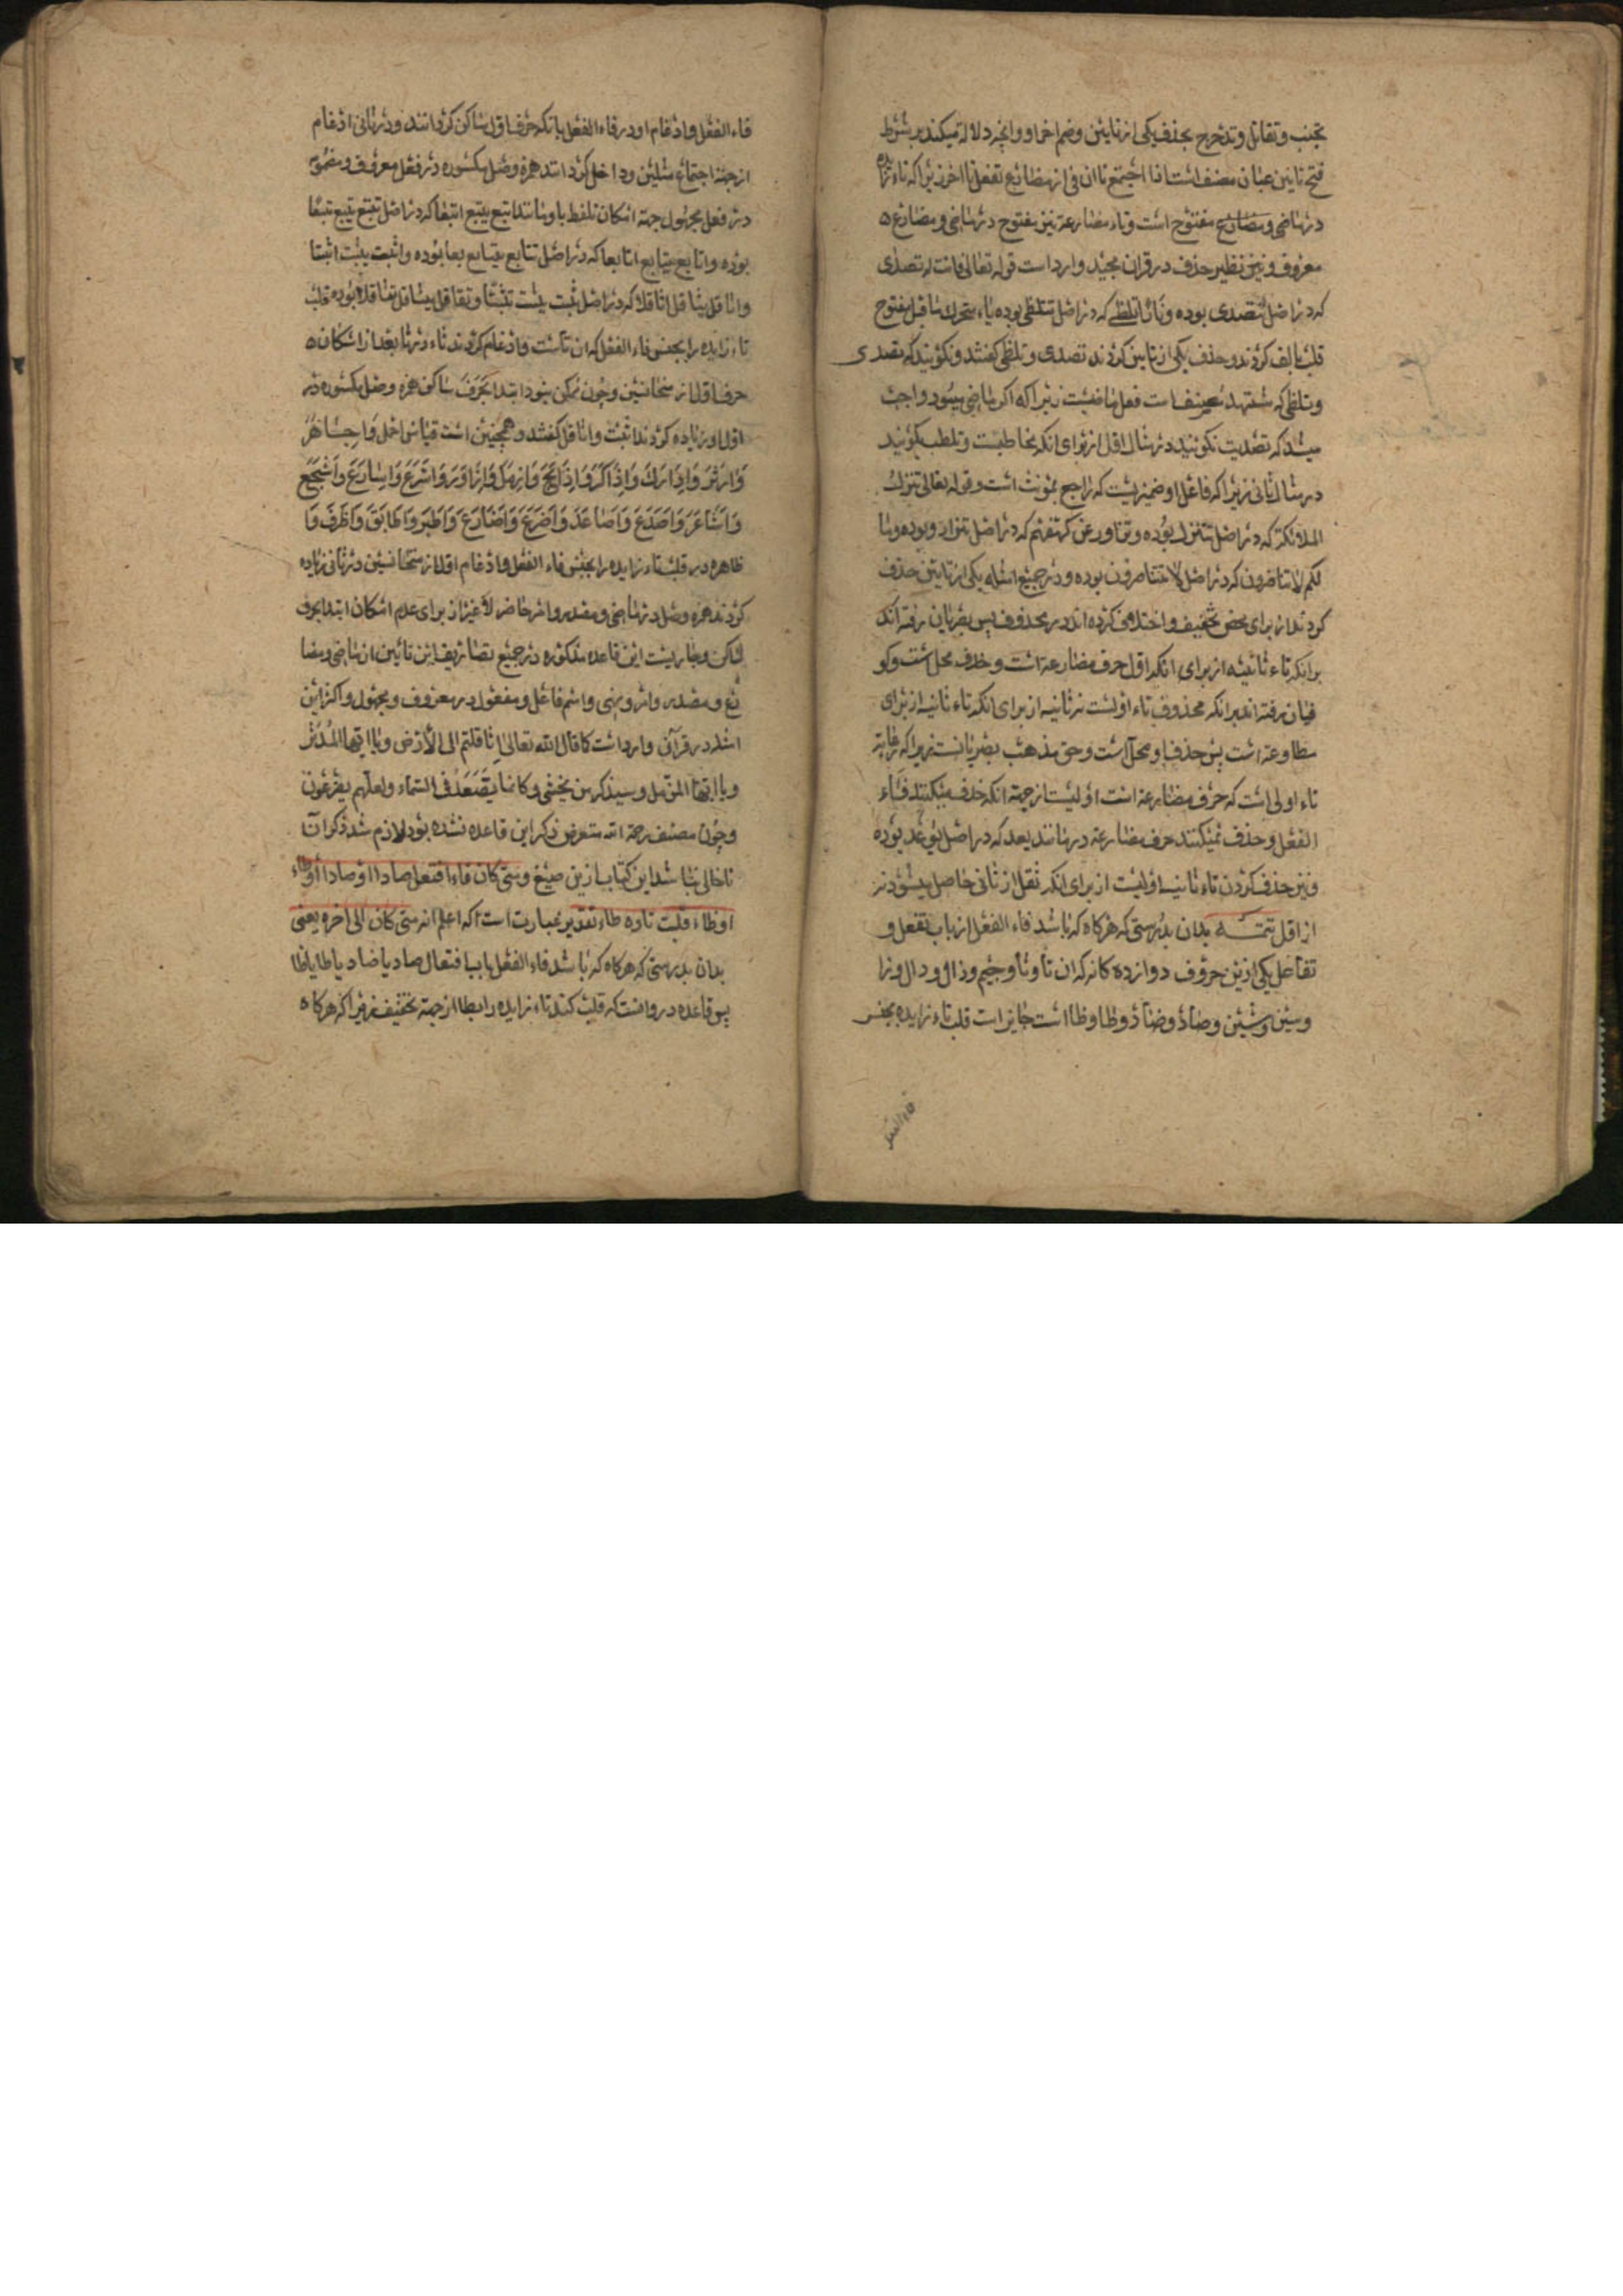 تجنب وتقاتل وتدحرج بحذف یکی از تایین وضم اخر او وانچه دلاله میکند بر شرط
فتح تایین عبارت مصنف است اذا اجتمع تاان فی از مضارع تفعل تا اخر زیرا که تاء زایده
در ماضی ومضارع مفتوح است وتاء مضارعة نیز مفتوح در ماضی و مضارع
معروف و نیز نظیر حذف در قران مجید وارد است قوله تعالی فانت له تصدی
که در اصل تتصدی بوده و نارا تلظی که در اصل تتلظی بوده یاء متحرک ماقبل مفتوح
قلب بالف کردند وحذف یکی از تایین کردند تصدی و تلظی کفتند و نکویند که تصدی
وتلظی که فعل ماضیست زیرا که اکر ماضی میبود واجب
میشد که تصدیت بکویند در مثال اول از برای انکه مخاطبست و تلظت بکویند
در مثال ثانی زیرا که فاعل او ضمیریست که راجع بمؤنث است و قوله تعالی تنزل
الملائکة که در اصل تتنزل بوده و تزاور عن کهفهم که در اصل تتزاور بوده وما
لکم لا تناصرون که در اصل لا تتناصرون بوده و در جمیع امثله یکی از تایین حذف
کردند از برای محض تخفیف و اختلاف کرده اند در محذوف پس بصریان رفته اند
برانکه تاء ثانیه از برای انکه اول حرف مضارعة است و حذف محل است وکو
فیان رفته اند برانکه محذوف تاء اولیست نه ثانیه از برای انکه تاء ثانیه از برای
مطاوعة است پس حذف او محل است و حق مذهب بصریانست زیرا که رعایة
تاء اولی است که حرف مضارعة است اولیست از جهة انکه حذف میکنند فاء
الفعل و حذف نمیکنند حرف مضارعة در مانند یعد که در اصل یوعد بوده
ونیز حذف کردن تاء ثانیه اولیست از برای انکه ثقل از ثانی حاصل میشود نه
از اول تتمـــه بدان بدرستی که هرکاه که باشد فاء الفعل از باب تفعل و
تفاعل یکی ازین حروف دوازده کانه که ان تا وثا وجیم وذال و دال و زا
وسین وشین وصاد وضاد وطا وظا است جایز است قلب تاء زایده بجنس
فاء الفعل
فاء الفعل وادغام او در فاء الفعل بانکه حرف اول ساکن کردانند و در ثانی ادغام
از جهة اجتماع مثلین وداخل کردانند همزه وصل مکسوره در فعل معروف و مضمومه
در فعل مجهول جهة امکان تلفظ باو مانند اتبع یتبع اتبعا که در اصل تتبع یتتبع تتبعا
بوده و اتابع یتابع اتابعا که در اصل تتابع یتتابع تتابعا بوده واثبت یثبت اثبتا
واثاقل یثاقل اثاقلا که در اصل تثبت یتثبت تثبتا و تثاقل یتثاقل تثاقلا بوده قلب
تاء زایده را بجنس فاء الفعل که ان ثاست وادغام کردند ثاء در ثا بعد از اسکان
حرف اول از متجانسین و چون ممکن نبود ابتدا بحرف ساکن همزه وصل مکسوره در
اول او زیاده کردند اثبت واثاقل کفتند و همچنین است قیاس
وادثر وادارك واذاكر وازمل وازاور واسرع واسارع واشجع
واشاعر واصدع واصاعد واضرع واضارع واطبر واطابق واظرف وا
ظاهره در قلب تاء زایده را بجنس فاء الفعل وادغام اول از متجانسین در ثانی زیاده
کردند همزه وصل در ماضی و مصدر وامر حاضر لا غیر از برای عدم امکان ابتدا بحرف
ساکن وجاریست این قاعده مذکوره در جمیع تصاریف این بابین از ماضی و مضا
رع و مصدر وامر ونهی واسم فاعل ومفعول در معروف ومجهول واکثر این
امثله در قرآن وارد است کما قال الله تعالی اثاقلتم الی الارض ویا ایها المدثر
ویا ایها المزمل وسیذکر من یخشی وکانما یصعد فی السماء ولعلهم یضرعون
وچون مصنف رحمة الله متعرض ذکر این قاعده نشده بود لازم شد ذکر آن
تا خالی نباشد این کتاب ازین صیغ ومتی کان فاء افتعل صادا او ضادا او طاء
او ظاء قلبت تاوه طاء تقدیر عبارت است که اعلم انه متی کان الی اخره یعنی
بدان بدرستی که هرکاه که باشد فاء الفعل باب افتعال صاد یا ضاد یا طا یا ظا
پس قاعده در وانست که قلب کنند تاء زایده را بطا از جهة تخفیف زیرا که هرکاه